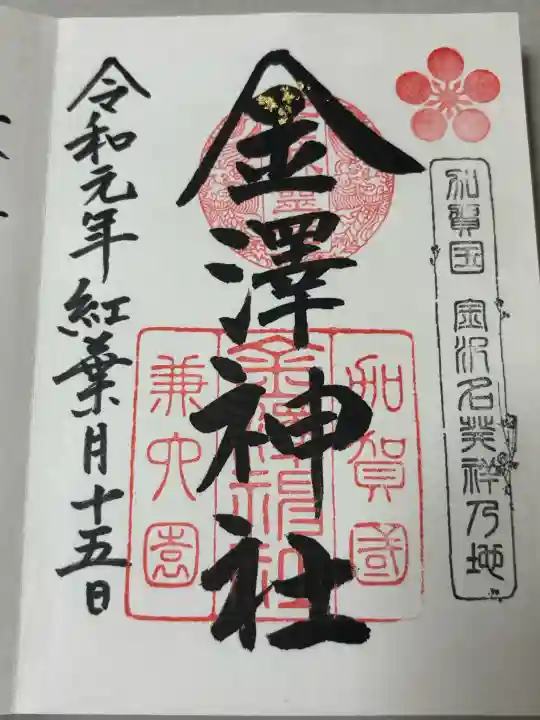 加賀国 金沢名発祥乃地
金澤神社
加賀國
金澤神社
兼六園
令和元年紅葉月十五日